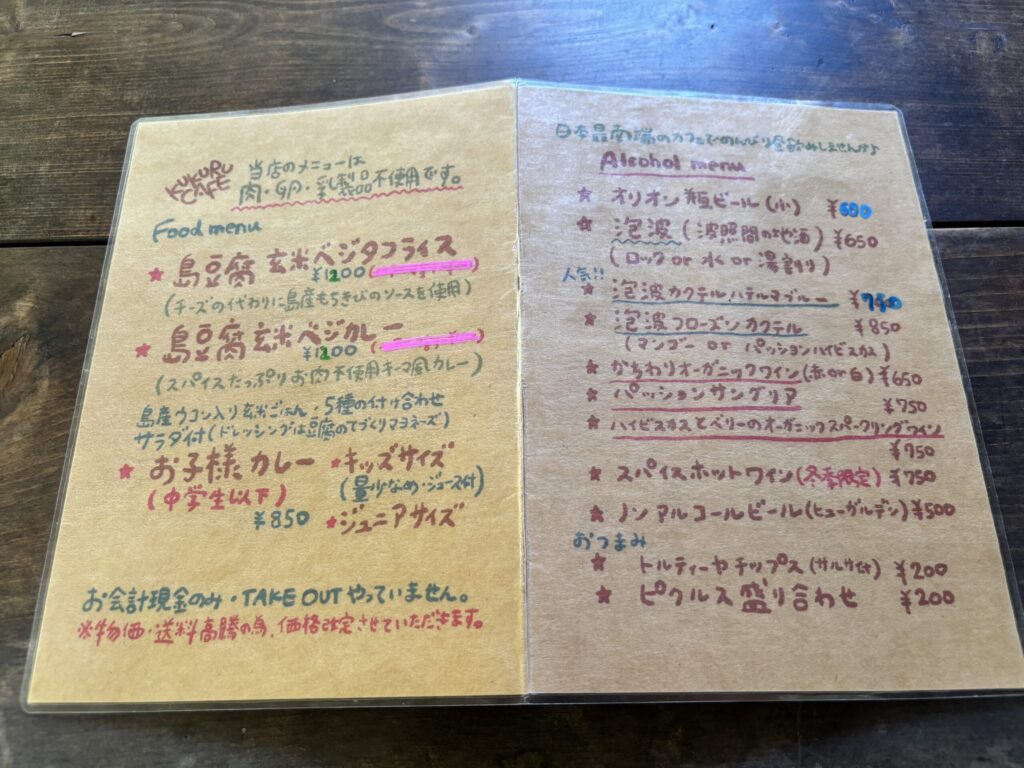 KUKURU
CAFE
当店のメニューは
肉・卵・乳製品不使用です。
Food menu
★ 島豆腐 玄米ベジタコライス
¥1200
(チーズの代わりに島産もちきびのソースを使用)
★ 島豆腐玄米ベジカレー
¥1200
(スパイスたっぷりお肉不使用キーマ風カレー)
島産ウコン入り玄米ごはん・5種の付け合わせ
サラダ付(ドレッシングは豆腐のてづくりマヨネーズ)
★ お子様カレー
(中学生以下)
¥850
★キッズサイズ
(量少なめ・ジュース付)
★ジュニアサイズ
お会計現金のみ・TAKE OUTやっていません。
※物価・送料高騰の為、価格改定させていただきます。
日本最南端のカフェでのんびり昼飲みしませんか♪
Alcohol menu
★ オリオン瓶ビール(小) ¥600
★ 泡波(波照間の地酒) ¥650
(ロック or 水 or 湯割り)
人気!!
★ 泡波カクテル ハテルマブルー ¥750
★ 泡波フローズンカクテル ¥850
(マンゴー or パッションハイビスカス)
★ かちわりオーガニックワイン(赤or白) ¥650
★ パッションサングリア ¥750
★ ハイビスカスとベリーのオーガニックスパークリングワイン
¥750
★ スパイスホットワイン(冬季限定) ¥750
★ ノンアルコールビール(ヒューガルデン) ¥500
おつまみ
★ トルティーヤチップス(サルサ付) ¥200
★ ピクルス盛り合わせ ¥200